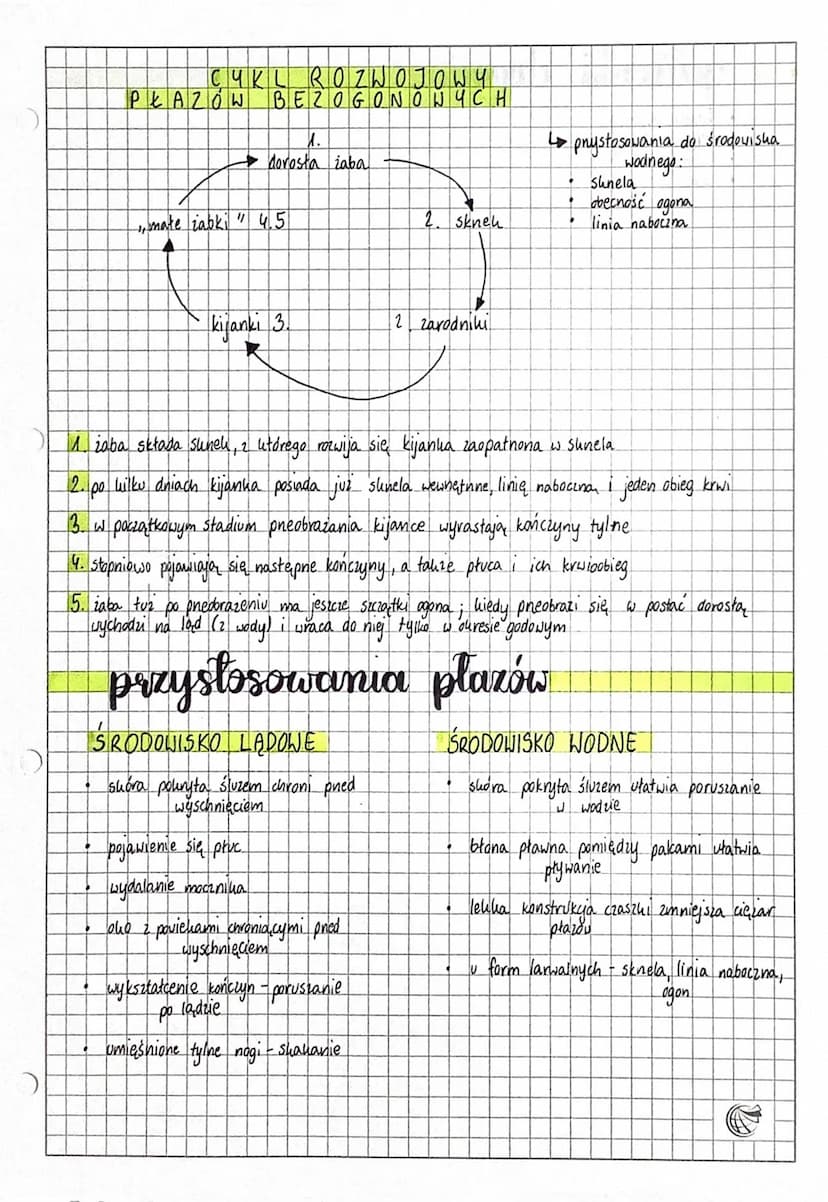 CYKL ROZWOJOWY
PŁAZÓW BEZOGONOWYCH
1.
dorosła żaba
↳ przystosowania do środowiska
wodnego:
• skrzela
• obecność ogona
• linia naboczna
"małe żabki" 4.5
2. skrzek
kijanki 3.
2. zarodniki
1. żaba składa skrzek, z którego rozwija się kijanka zaopatrzona w skrzela
2. po kilku dniach kijanka posiada już skrzela wewnętrzne, linię naboczną i jeden obieg krwi
3. w początkowym stadium przeobrażania kijance wyrastają kończyny tylne
4. stopniowo pojawiają się następne kończyny, a także płuca i ich krwioobieg
5. żaba tuż po przeobrażeniu ma jeszcze szczątki ogona; kiedy przeobrazi się w postać dorosłą
wychodzi na ląd (z wody) i wraca do niej tylko w okresie godowym
przystosowania płazów
ŚRODOWISKO LĄDOWE
• skóra pokryta śluzem chroni przed
wyschnięciem
• pojawienie się płuc
• wydalanie mocznika
• oko z powiekami chroniącymi przed
wyschnięciem
• wykształcenie kończyn - poruszanie
po lądzie
• umięśnione tylne nogi - skakanie
ŚRODOWISKO WODNE
• skóra pokryta śluzem ułatwia poruszanie
w wodzie
• błona pławna pomiędzy palcami ułatwia
pływanie
• lekka konstrukcja czaszki zmniejsza ciężar
płazów
• u form larwalnych - skrzela, linia naboczna,
ogon